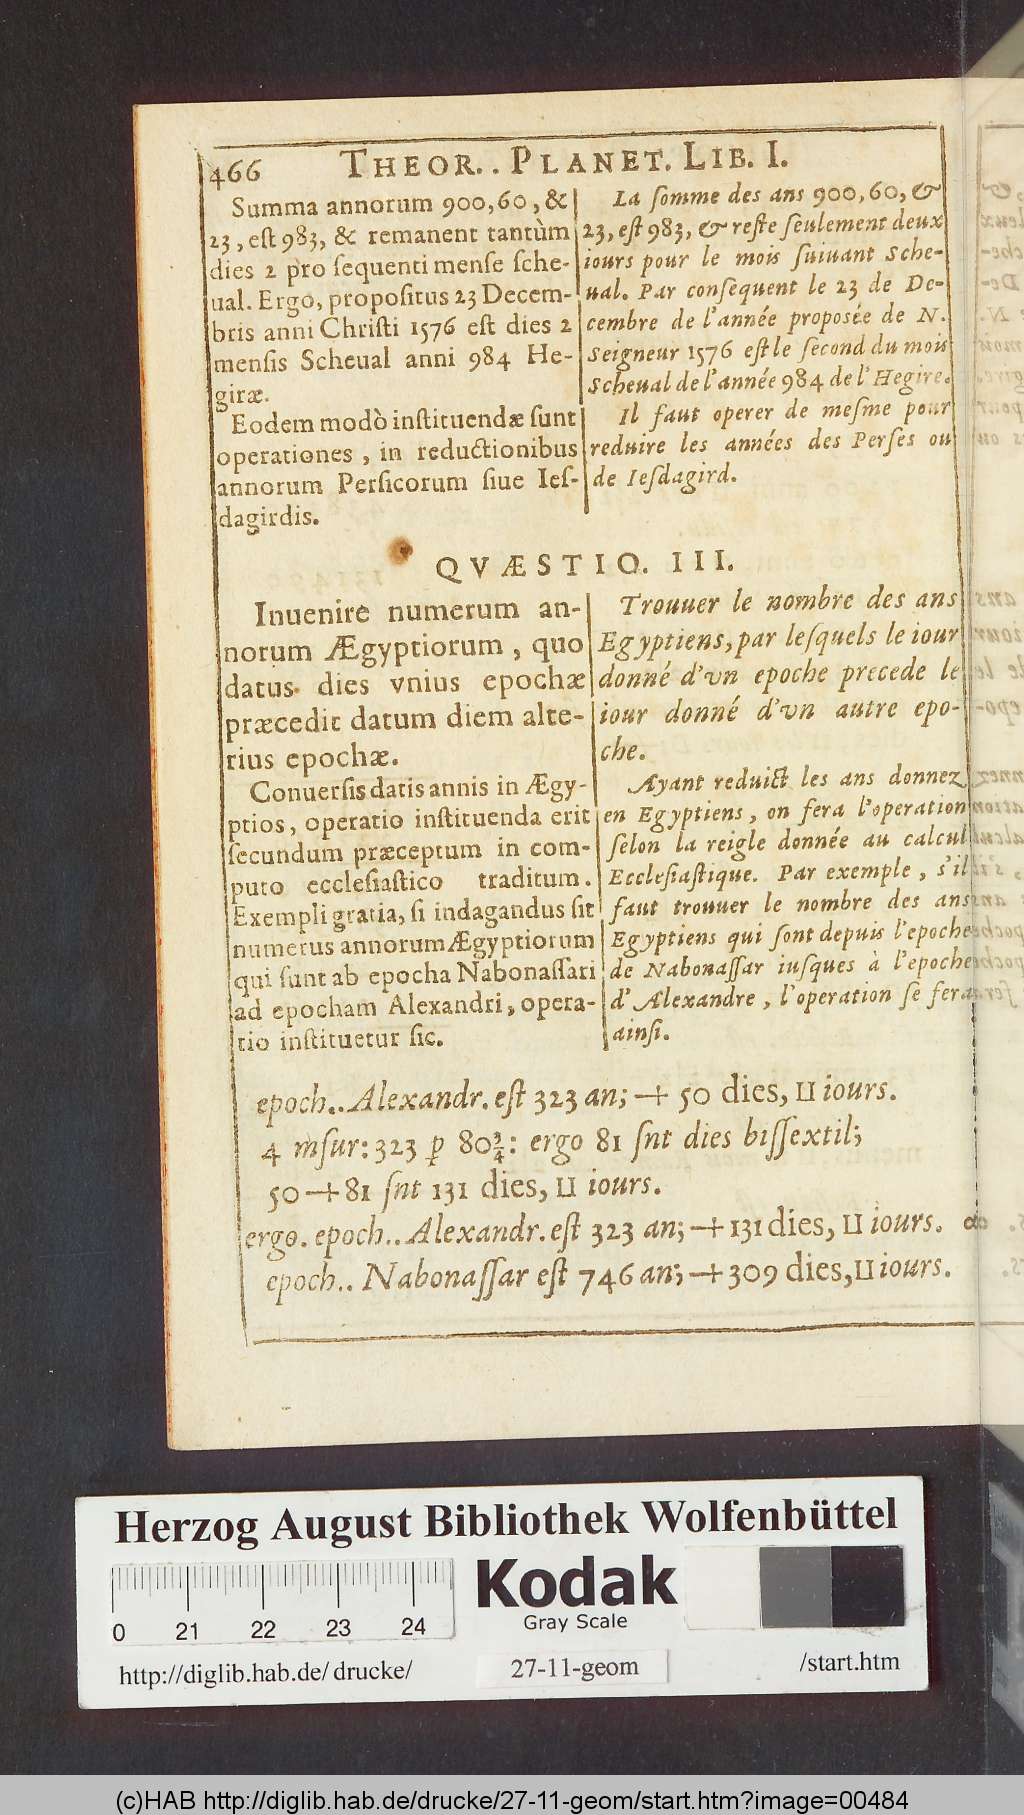 466 THEOR.. PLANET. LIB. I.
Summa annorum 900, 60, &
23, eſt 983, & remanent tantùm
dies 2 pro ſequenti menſe ſche-
ual. Ergo, propoſitus 23 Decem-
bris anni Chriſti 1576 eſt dies 2
menſis Scheual anni 984 He-
giræ.
Eodem modò inſtituendæ ſunt
operationes, in reductionibus
annorum Perſicorum ſiue Ieſ-
dagirdis.
La ſomme des ans 900, 60, &
23, eſt 983, & reſte ſeulement deux
iours pour le mois ſuiuant Sche-
ual. Par conſequent le 23 de De-
cembre de l'année propoſée de N.
Seigneur 1576 eſt le ſecond du mois
Scheual de l'année 984 de l'Hegire.
Il faut operer de meſme pour
reduire les années des Perſes ou
de Ieſdagird.
QVÆSTIO. III.
Inuenire numerum an-
norum Ægyptiorum, quo
datus dies vnius epochæ
præcedit datum diem alte-
rius epochæ.
Conuerſis datis annis in Ægy-
ptios, operatio inſtituenda erit
ſecundum præceptum in com-
puto eccleſiaſtico traditum.
Exempli gratia, ſi indagandus ſit
numerus annorum Ægyptiorum
qui ſunt ab epocha Nabonaſſari
ad epocham Alexandri, opera-
tio inſtituetur ſic.
Trouuer le nombre des ans
Egyptiens, par leſquels le iour
donné d'vn epoche precede le
iour donné d'vn autre epo-
che.
Ayant reduict les ans donnez
en Egyptiens, on fera l'operation
ſelon la reigle donnée au calcul
Eccleſiaſtique. Par exemple, s'il
faut trouuer le nombre des ans
Egyptiens qui ſont depuis l'epoche
de Nabonaſſar iuſques à l'epoche
d'Alexandre, l'operation ſe fera
ainſi.
epoch.. Alexandr. eſt 323 an; + 50 dies, II iours.
4 mſur: 323 p 80 3/4: ergo 81 ſnt dies biſſextil;
50 + 81 ſnt 131 dies, II iours.
ergo. epoch.. Alexandr. eſt 323 an; + 131 dies, II iours.
epoch.. Nabonaſſar eſt 746 an; + 309 dies, II iours.
Herzog August Bibliothek Wolfenbüttel
0 21 22 23 24
Kodak
Gray Scale
http://diglib.hab.de/drucke/ 27-11-geom /start.htm
(c)HAB http://diglib.hab.de/drucke/27-11-geom/start.htm?image=00484